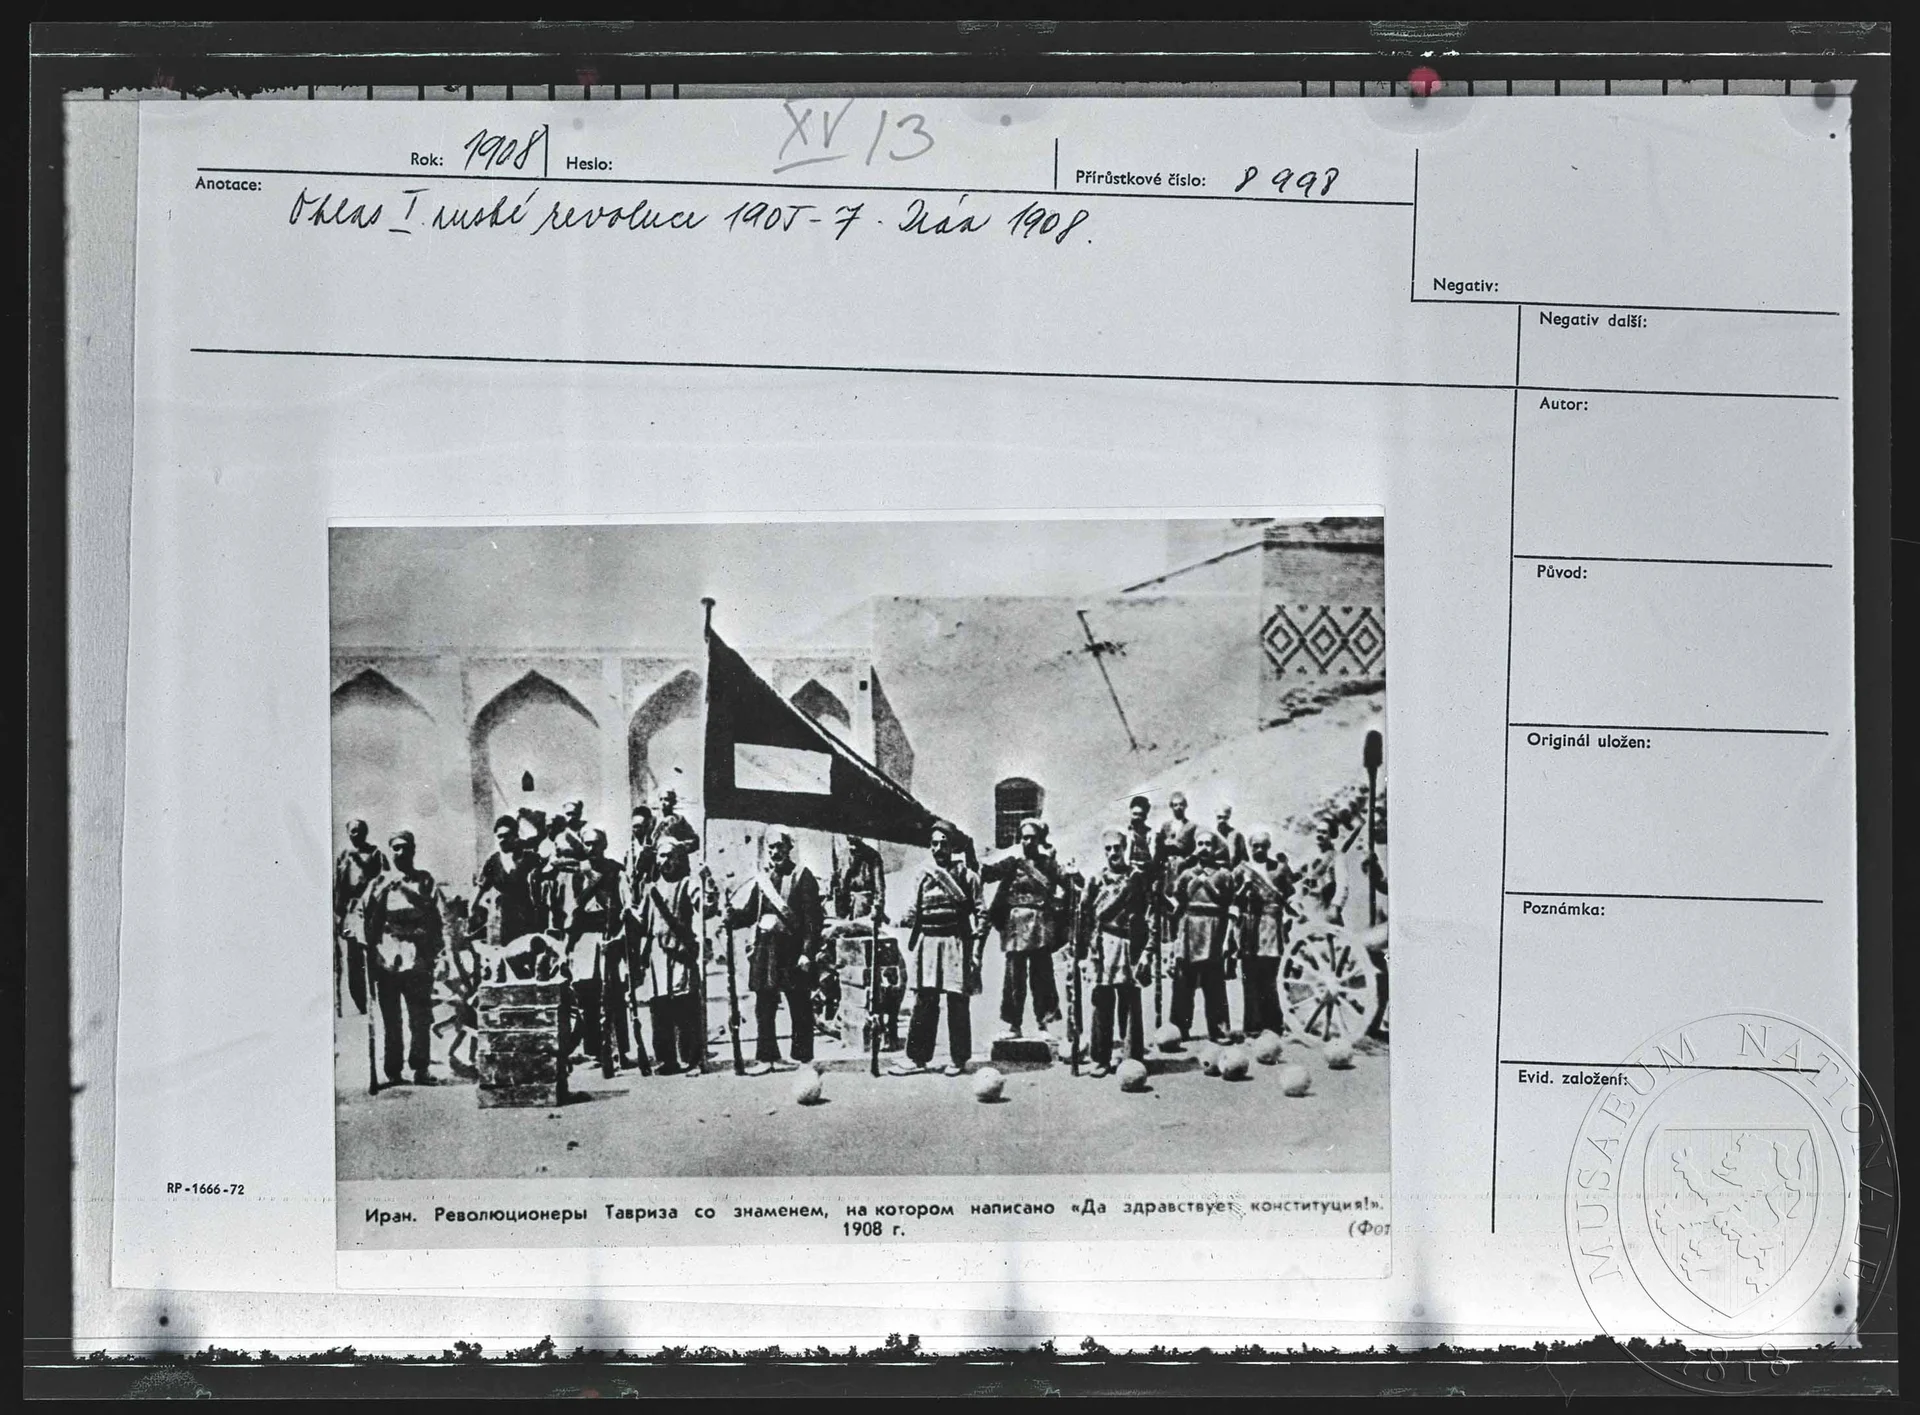 XV/3
Rok: 1908 Heslo:
Přírůstkové číslo: 8 998
Anotace: Ohlas I. ruské revoluce 1905-7. Irán 1908.
Negativ:
Negativ další:
Autor:
Původ:
Originál uložen:
Poznámka:
Evid. založení:
RP-1666-72
Иран. Революционеры Тавриза со знаменем, на котором написано «Да здравствует конституция!».
1908 г.
(Фот
MUSAEUM NATIONALE
1818